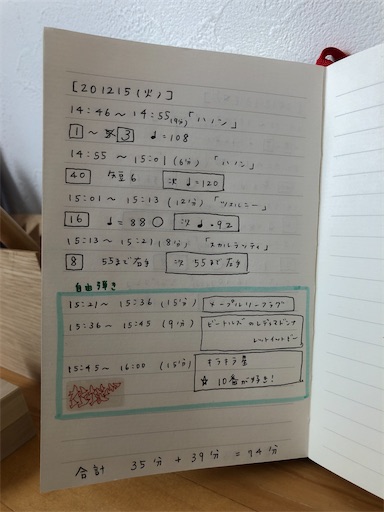 [201215(火)]
14:46〜14:55(9分)「ハノン」
1〜3 ♩=108
14:55〜15:01(6分)「ハノン」
40 短6 次♩=120
15:01〜15:13(12分)「ツェルニー」
16 ♩=88○ 次♩=92
15:13〜15:21(8分)「スカルラッティ」
8 55まで右手 次55まで左手
自由弾き
15:21〜15:36(15分) メープルリーフラグ
15:36〜15:45(9分) ビートルズ
レットイットビー
15:45〜16:00(15分) キラキラ星
☆10番が好き!
合計 35分+39分=74分